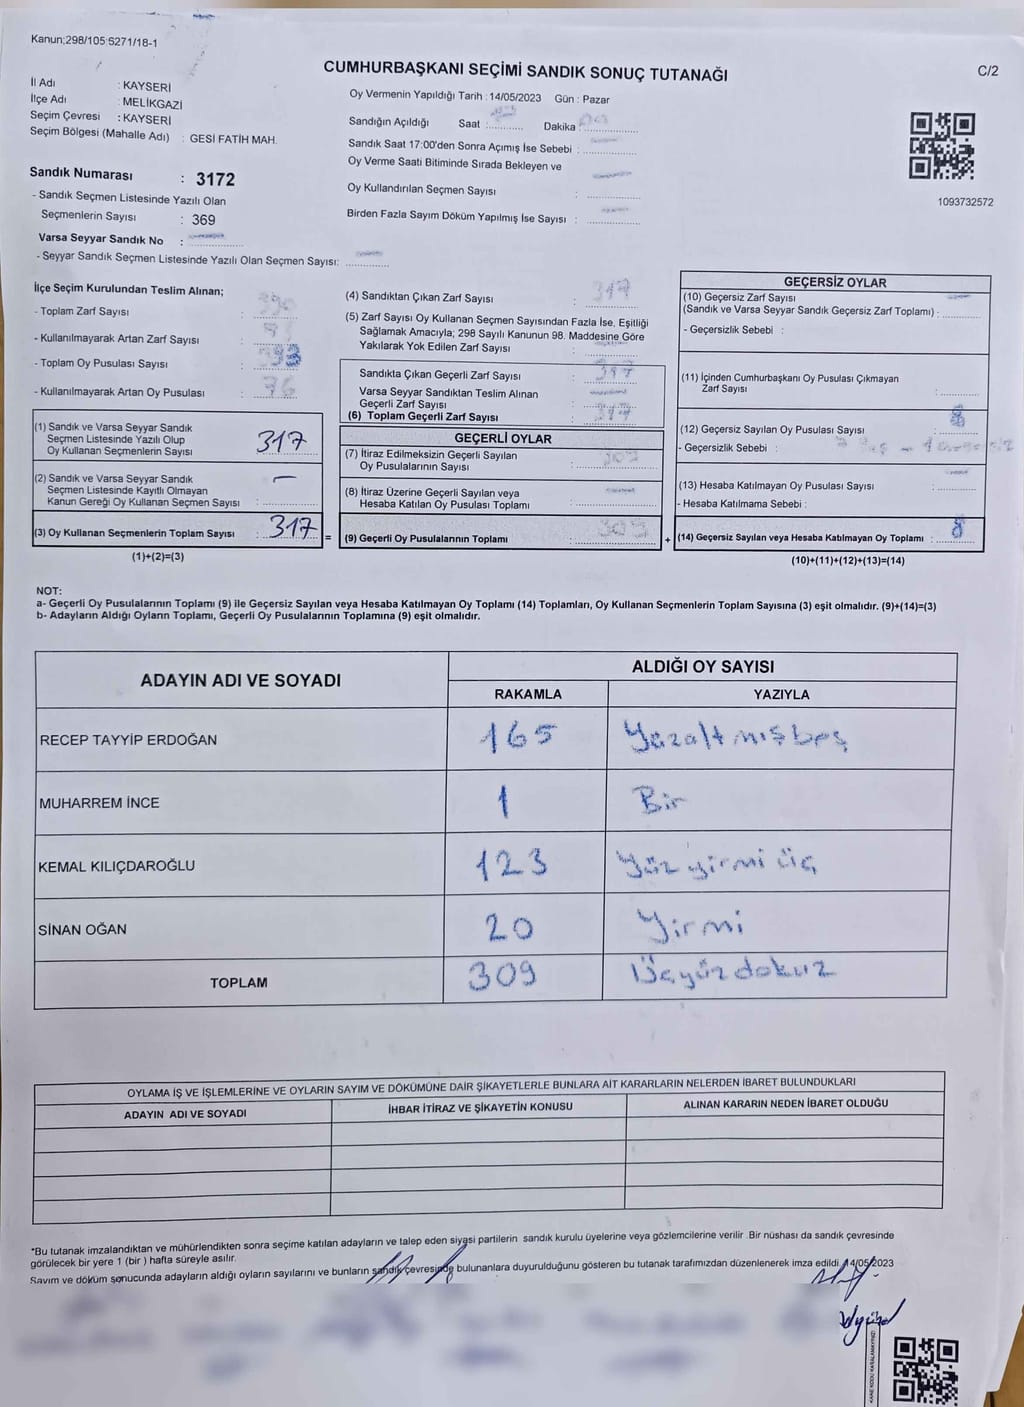 Kanun;298/105:5271/18-1
CUMHURBAŞKANI SEÇİMİ SANDIK SONUÇ TUTANAĞI
C/2
İl Adı : KAYSERİ
İlçe Adı : MELİKGAZİ
Seçim Çevresi : KAYSERİ
Seçim Bölgesi (Mahalle Adı) : GESİ FATİH MAH.
Oy Vermenin Yapıldığı Tarih : 14/05/2023 Gün : Pazar
Sandığın Açıldığı Saat : Dakika :
Sandık Saat 17:00'den Sonra Açımış İse Sebebi :
Oy Verme Saati Bitiminde Sırada Bekleyen ve
Oy Kullandırılan Seçmen Sayısı :
Birden Fazla Sayım Döküm Yapılmış İse Sayısı :
1093732572
Sandık Numarası : 3172
- Sandık Seçmen Listesinde Yazılı Olan
Seçmenlerin Sayısı : 369
Varsa Seyyar Sandık No :
- Seyyar Sandık Seçmen Listesinde Yazılı Olan Seçmen Sayısı:
İlçe Seçim Kurulundan Teslim Alınan;
- Toplam Zarf Sayısı :
- Kullanılmayarak Artan Zarf Sayısı :
- Toplam Oy Pusulası Sayısı : 393
- Kullanılmayarak Artan Oy Pusulası : 76
(1) Sandık ve Varsa Seyyar Sandık
Seçmen Listesinde Yazılı Olup
Oy Kullanan Seçmenlerin Sayısı : 317
(2) Sandık ve Varsa Seyyar Sandık
Seçmen Listesinde Kayıtlı Olmayan
Kanun Gereği Oy Kullanan Seçmen Sayısı : —
(3) Oy Kullanan Seçmenlerin Toplam Sayısı : 317 =
(1)+(2)=(3)
(4) Sandıktan Çıkan Zarf Sayısı : 317
(5) Zarf Sayısı Oy Kullanan Seçmen Sayısından Fazla İse, Eşitliği
Sağlamak Amacıyla; 298 Sayılı Kanunun 98. Maddesine Göre
Yakılarak Yok Edilen Zarf Sayısı :
Sandıkta Çıkan Geçerli Zarf Sayısı : 317
Varsa Seyyar Sandıktan Teslim Alınan
Geçerli Zarf Sayısı :
(6) Toplam Geçerli Zarf Sayısı : 317
GEÇERLİ OYLAR
(7) İtiraz Edilmeksizin Geçerli Sayılan
Oy Pusulalarının Sayısı :
(8) İtiraz Üzerine Geçerli Sayılan veya
Hesaba Katılan Oy Pusulası Toplamı :
(9) Geçerli Oy Pusulalarının Toplamı : +
GEÇERSİZ OYLAR
(10) Geçersiz Zarf Sayısı
(Sandık ve Varsa Seyyar Sandık Geçersiz Zarf Toplamı) :
- Geçersizlik Sebebi :
(11) İçinden Cumhurbaşkanı Oy Pusulası Çıkmayan
Zarf Sayısı :
(12) Geçersiz Sayılan Oy Pusulası Sayısı : 8
- Geçersizlik Sebebi :
(13) Hesaba Katılmayan Oy Pusulası Sayısı :
- Hesaba Katılmama Sebebi :
(14) Geçersiz Sayılan veya Hesaba Katılmayan Oy Toplamı : 8
(10)+(11)+(12)+(13)=(14)
NOT:
a- Geçerli Oy Pusulalarının Toplamı (9) ile Geçersiz Sayılan veya Hesaba Katılmayan Oy Toplamı (14) Toplamları, Oy Kullanan Seçmenlerin Toplam Sayısına (3) eşit olmalıdır. (9)+(14)=(3)
b- Adayların Aldığı Oyların Toplamı, Geçerli Oy Pusulalarının Toplamına (9) eşit olmalıdır.
ADAYIN ADI VE SOYADI
ALDIĞI OY SAYISI
RAKAMLA YAZIYLA
RECEP TAYYİP ERDOĞAN 165 Yüzaltmışbeş
MUHARREM İNCE 1 Bir
KEMAL KILIÇDAROĞLU 123 Yüz yirmi üç
SİNAN OĞAN 20 Yirmi
TOPLAM 309 Üçyüz dokuz
OYLAMA İŞ VE İŞLEMLERİNE VE OYLARIN SAYIM VE DÖKÜMÜNE DAİR ŞİKAYETLERLE BUNLARA AİT KARARLARIN NELERDEN İBARET BULUNDUKLARI
ADAYIN ADI VE SOYADI İHBAR İTİRAZ VE ŞİKAYETİN KONUSU ALINAN KARARIN NEDEN İBARET OLDUĞU
*Bu tutanak imzalandıktan ve mühürlendikten sonra seçime katılan adayların ve talep eden siyasi partilerin sandık kurulu üyelerine veya gözlemcilerine verilir. Bir nüshası da sandık çevresinde
görülecek bir yere 1 (bir) hafta süreyle asılır.
Sayım ve döküm sonucunda adayların aldığı oyların sayılarını ve bunların sandık çevresinde bulunanlara duyurulduğunu gösteren bu tutanak tarafımızdan düzenlenerek imza edildi. 14/05/2023